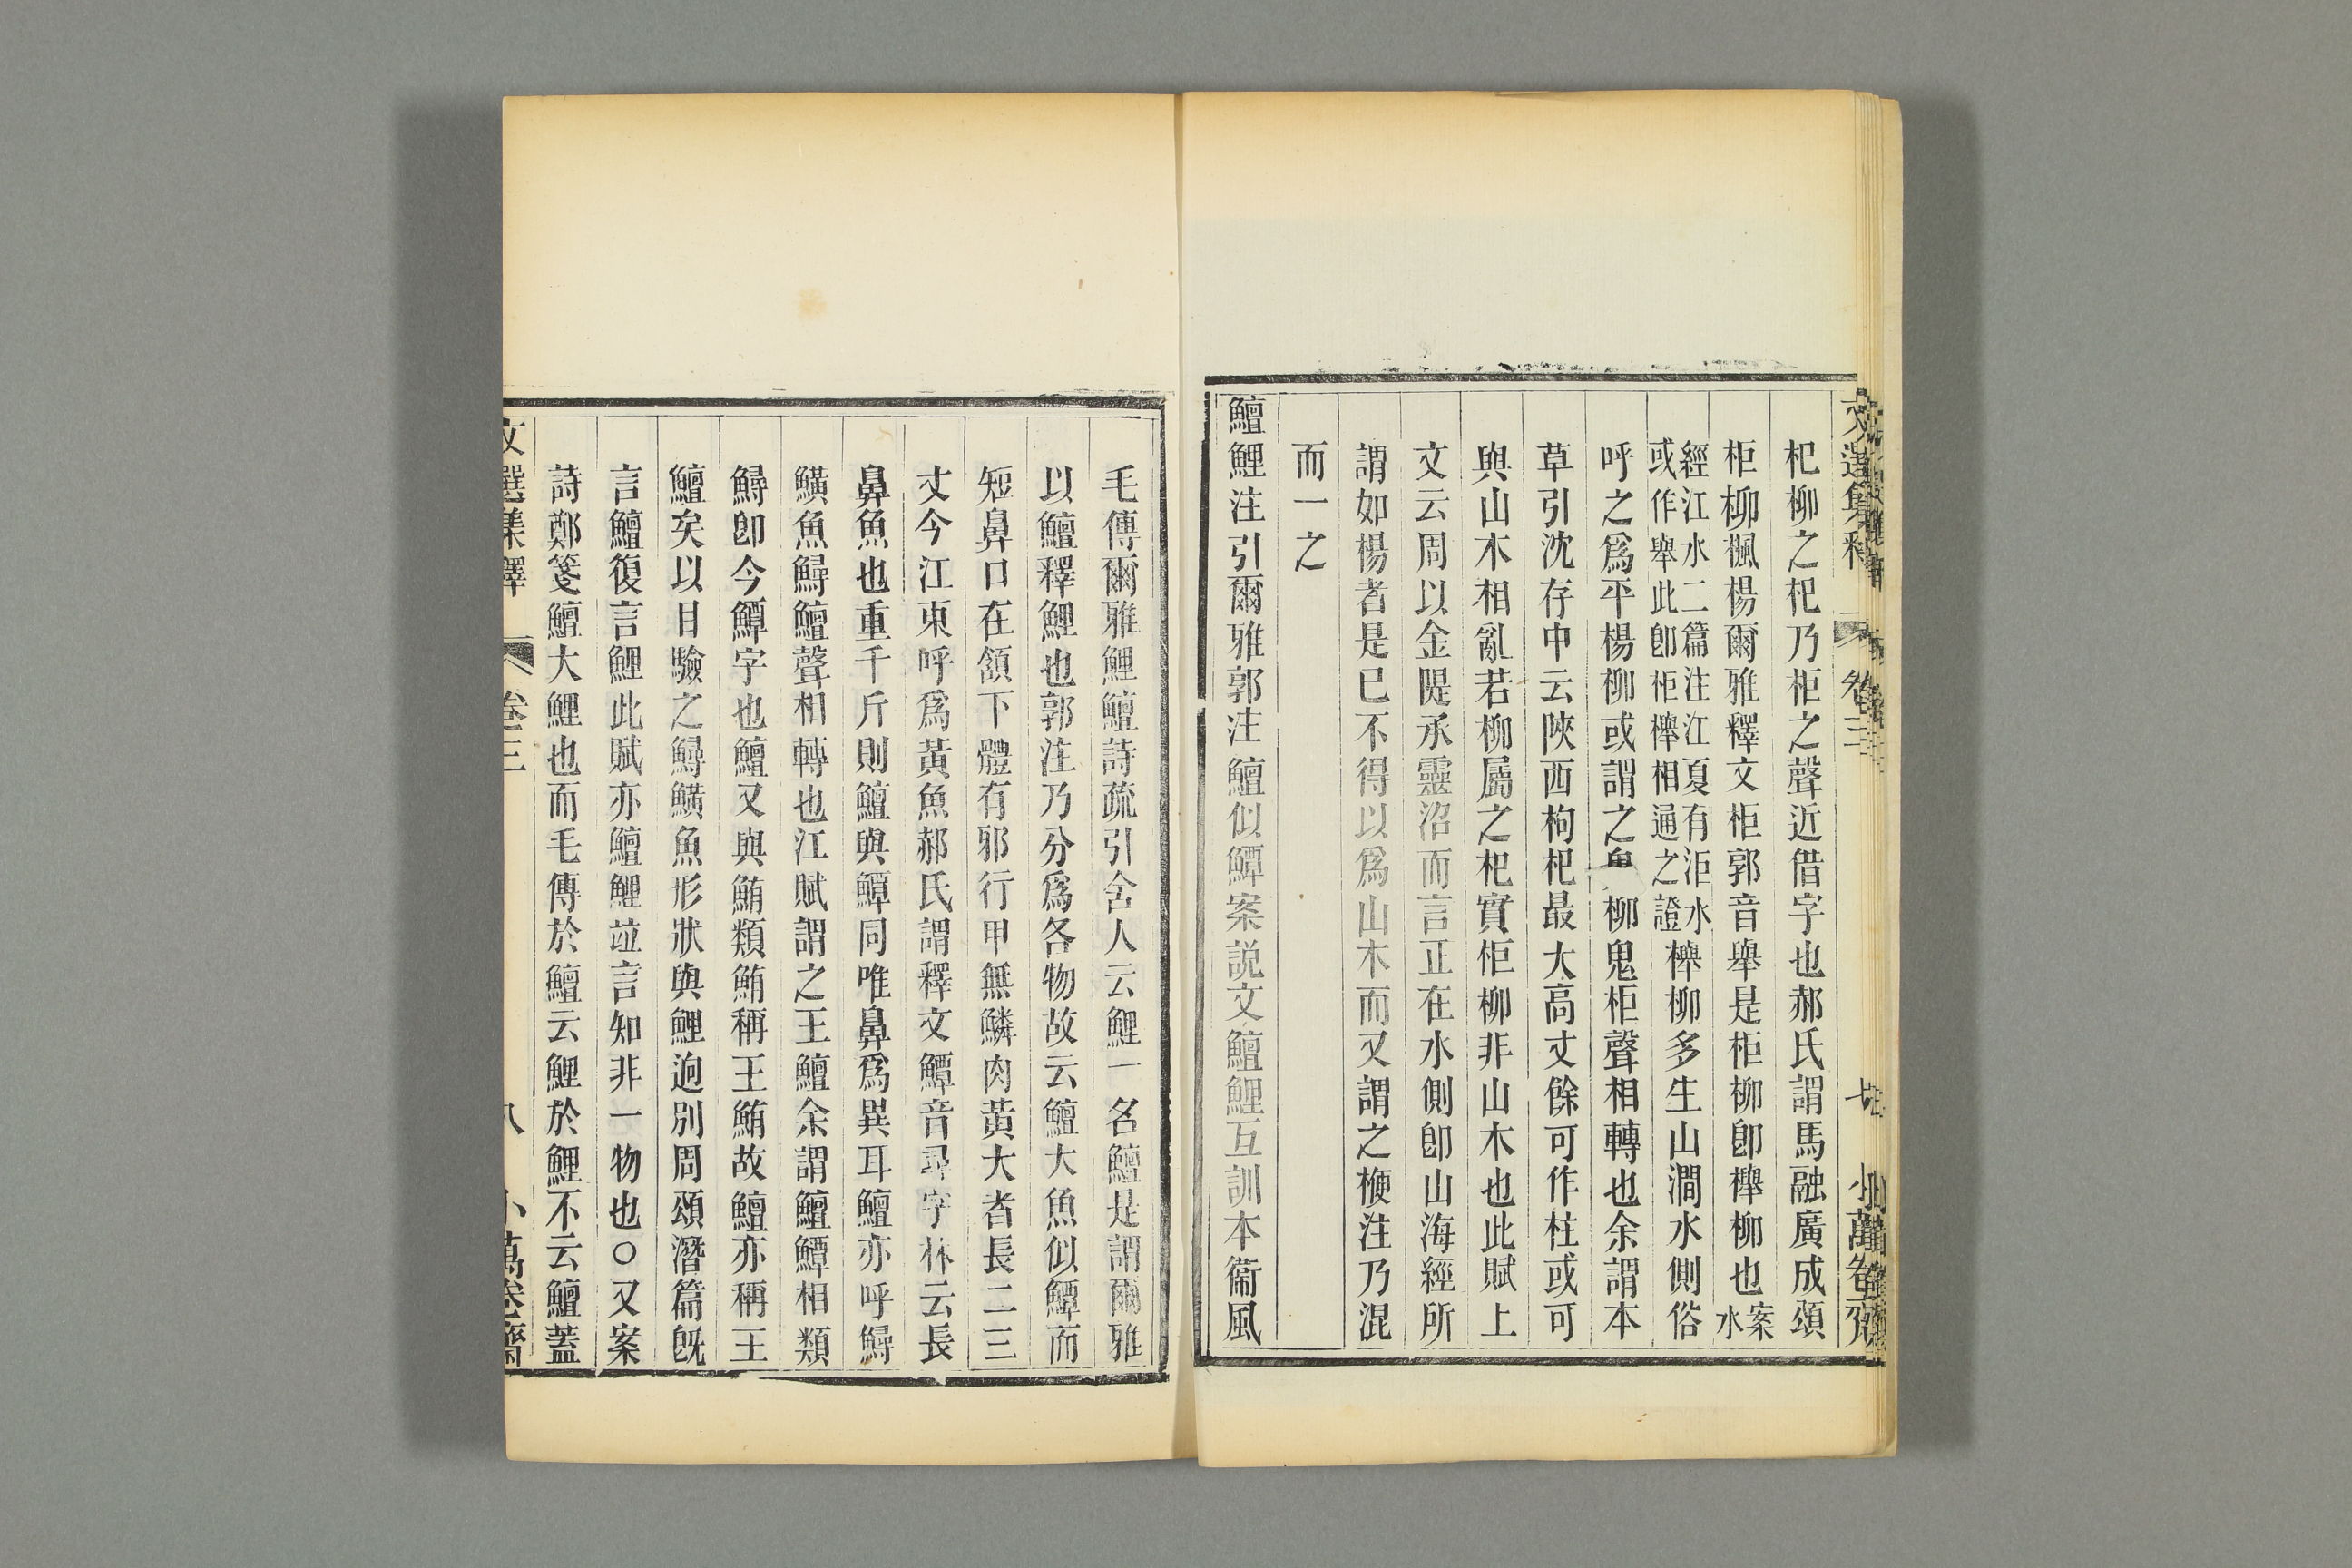 文選集釋 卷三 七 小萬卷齋
杞柳之杞乃柜之聲近借字也郝氏謂馬融廣成頌
柜柳楓楊爾雅釋文柜郭音舉是柜柳卽櫸柳也案水
經江水二篇注江夏有洰水
或作舉此卽柜櫸相通之證櫸柳多生山澗水側俗
呼之爲平楊柳或謂之鬼柳鬼柜聲相轉也余謂本
草引沈存中云陜西枸杞最大高丈餘可作柱或可
與山木相亂若柳屬之杞實柜柳非山木也此賦上
文云周以金隄承靈沼而言正在水側卽山海經所
謂如楊者是已不得以爲山木而又謂之楩注乃混
而一之
鱣鯉注引爾雅郭注鱣似鱏案説文鱣鯉互訓本衞風
毛傳爾雅鯉鱣詩疏引舍人云鯉一名鱣是謂爾雅
以鱣釋鯉也郭注乃分爲各物故云鱣大魚似鱏而
短鼻口在頷下體有邪行甲無鱗肉黃大者長二三
丈今江東呼爲黃魚郝氏謂釋文鱏音尋字林云長
鼻魚也重千斤則鱣與鱏同唯鼻爲異耳鱣亦呼鱘
鱑魚鱘鱣聲相轉也江賦謂之王鱣余謂鱣鱏相類
鱘卽今鱏字也鱣又與鮪類鮪稱王鮪故鱣亦稱王
鱣矣以目驗之鱘鱑魚形狀與鯉迥別周頌潛篇旣
言鱣復言鯉此賦亦鱣鯉竝言知非一物也○又案
詩鄭箋鱣大鯉也而毛傳於鱣云鯉於鯉不云鱣蓋
文選集釋 卷三 八 小萬卷齋